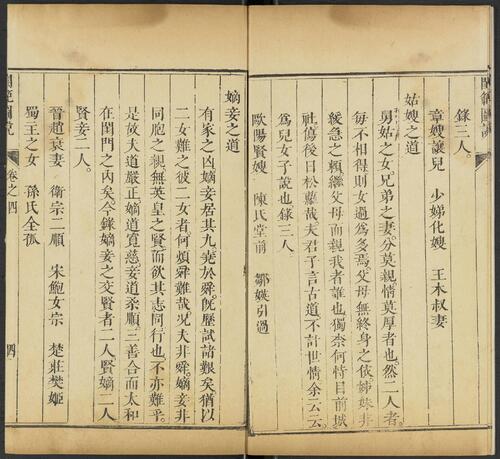 錄三人。
章嫂讓兒 少娣化嫂 王木叔妻
姑嫂之道
舅姑之女兄弟之妻分莫親情莫厚者也然二人者
每不相得則女過爲多焉父母無終身之依姊妹非
緩急之賴繼父母而親我者誰也獨奈何恃目前城
社傷後日松蘿哉夫君子言古道不計世情余云云
爲兒女子說也錄三人
歐陽賢嫂 陳氏堂前 鄒媖引過
嫡妾之道
有家之凶嫡妾居其九堯於舜旣歷試諸艱矣猶以
二女難之彼二女者何煩舜難哉况夫非舜嫡妾非
同胞之親無英皇之賢而欲其志同行也不亦難乎
是故夫道嚴正嫡道寬慈妾道柔順三善合而太和
在閨門之內矣今錄嫡妾之交賢者二人賢嫡二人
賢妾二人。
晉趙衰妻 衛宗二順 宋鮑女宗 楚莊樊姬
蜀王之女 孫氏全孤
卷之四 四